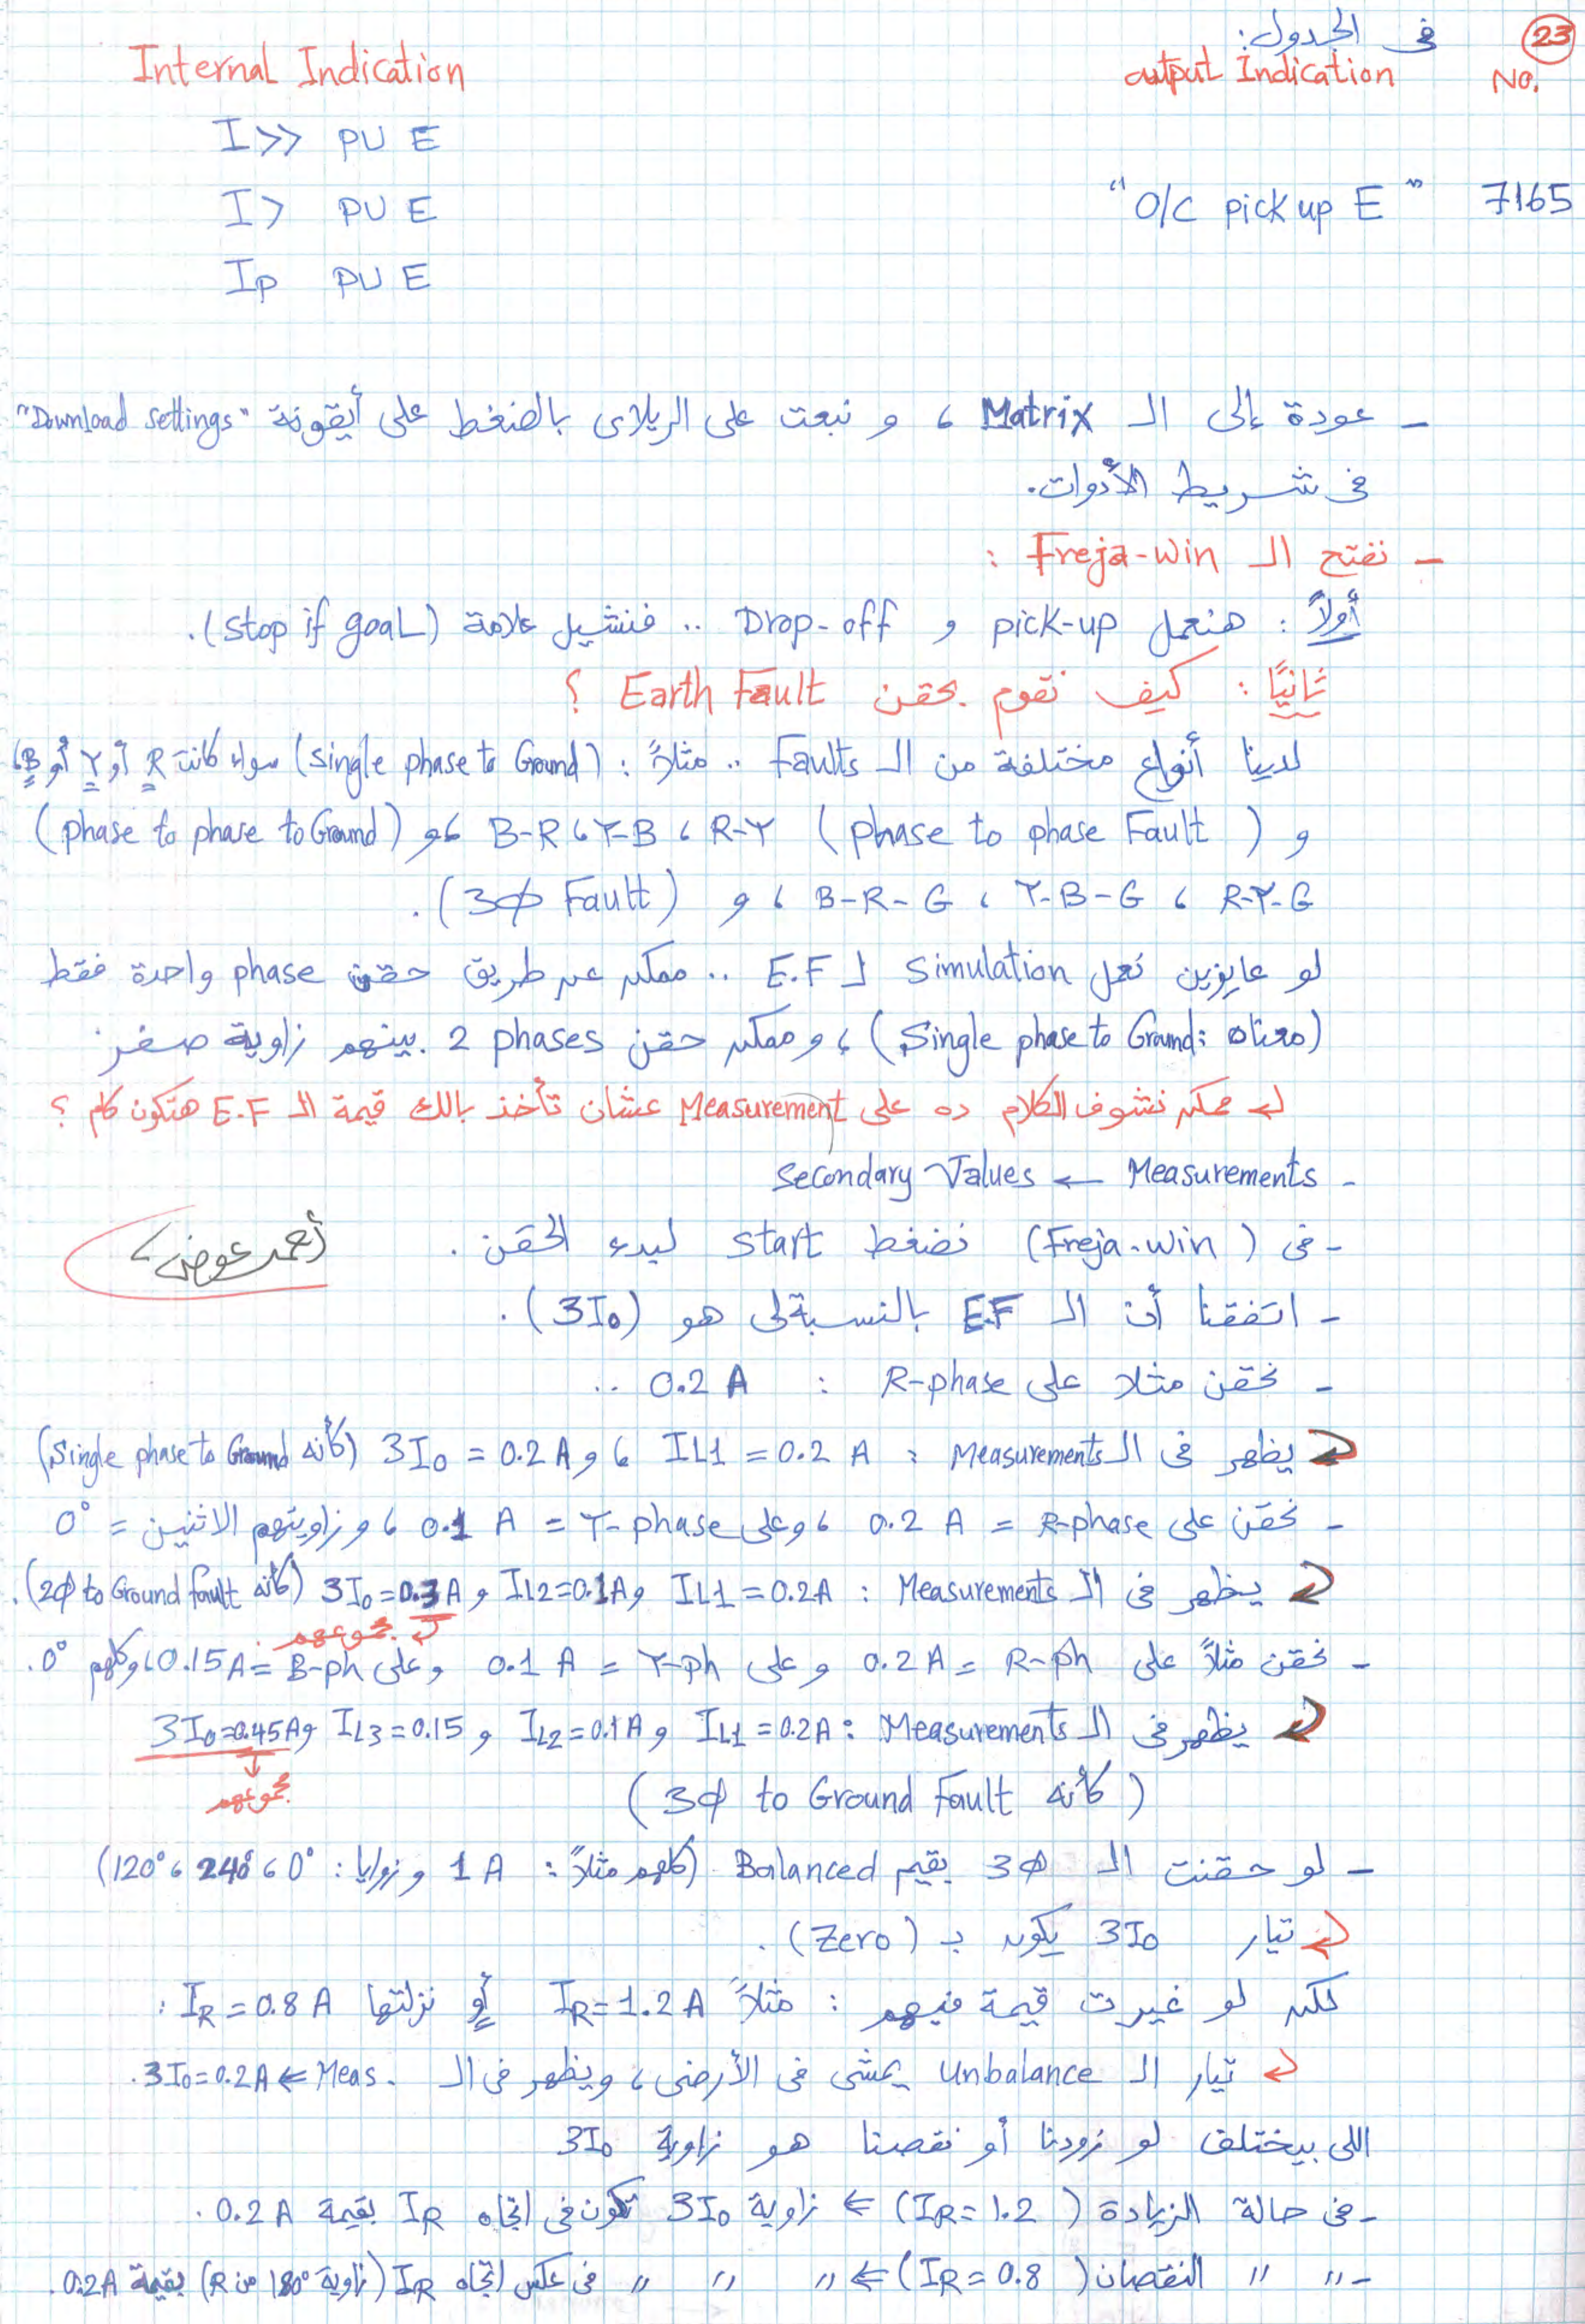 23
فى الجدول:
No. output Indication Internal Indication
I>> PU E
7165 "O/C pick up E" I> PU E
Ip PU E
- عودة إلى الـ Matrix ، و نبعت على الريلاى بالضغط على أيقونة "Download settings"
فى شريط الأدوات.
- نفتح الـ Freja-win :
أولاً : هنعمل pick-up و Drop-off .. فنشيل علامة (stop if goal).
ثانيًا : كيف نقوم بحقن Earth Fault ؟
لدينا أنواع مختلفة من الـ Faults .. مثلاً : (single phase to Ground) سواء كانت R أو Y أو B،
و ( phase to phase Fault ) R-Y ، Y-B ، B-R ، و (phase to phase to Ground)
R-Y-G ، Y-B-G ، B-R-G ، و (3Ø Fault).
لو عايزين نعمل Simulation لـ E.F .. ممكن عن طريق حقن phase واحدة فقط
(معناه: Single phase to Ground) ، و ممكن حقن 2 phases بينهم زاوية صفر.
ممكن نشوف الكلام ده على Measurement عشان تأخذ بالك قيمة الـ E.F هتكون كام ؟
- Measurements ← Secondary Values
- فى (Freja-win) نضغط start لبدء الحقن .
أحمد عوض
- اتفقنا أن الـ E.F بالنسبة لى هو (3I₀).
- نحقن مثلا على R-phase : 0.2 A ..
يظهر فى الـ Measurements : IL1 = 0.2 A ، و 3I₀ = 0.2 A (كأنه Single phase to Ground)
- نحقن على R-phase = 0.2 A ، و على Y-phase = 0.1 A ، و زاويتهم الاثنين = 0°
يظهر فى الـ Measurements : IL1 = 0.2A و IL2=0.1A و 3I₀=0.3A (كأنه 2Ø to Ground fault).
مجموعهم
- نحقن مثلاً على R-ph = 0.2A و على Y-ph = 0.1 A و على B-ph = 0.15A ، وكلهم 0°.
يظهر فى الـ Measurements : IL1 = 0.2A و IL2=0.1A و IL3=0.15 و 3I₀=0.45A
مجموعهم
( كأنه 3Ø to Ground Fault )
- لو حقنت الـ 3Ø بقيم Balanced (كلهم مثلاً : 1 A و زوايا : 0° ، 240° ، 120°)
تيار 3I₀ يكون بـ (Zero) .
لكن لو غيرت قيمة فيهم : مثلاً IR=1.2 A أو نزلتها IR = 0.8 A :
تيار الـ Unbalance يمشى فى الأرضى ، ويظهر فى الـ Meas. ← 3I₀=0.2A.
اللى بيختلف لو زودنا أو نقصنا هو زاوية 3I₀
- فى حالة الزيادة (IR=1.2) ← زاوية 3I₀ تكون فى اتجاه IR بقيمة 0.2 A .
- " " النقصان (IR=0.8) ← " " " فى عكس اتجاه IR (زاوية 180° من R) بقيمة 0.2A .